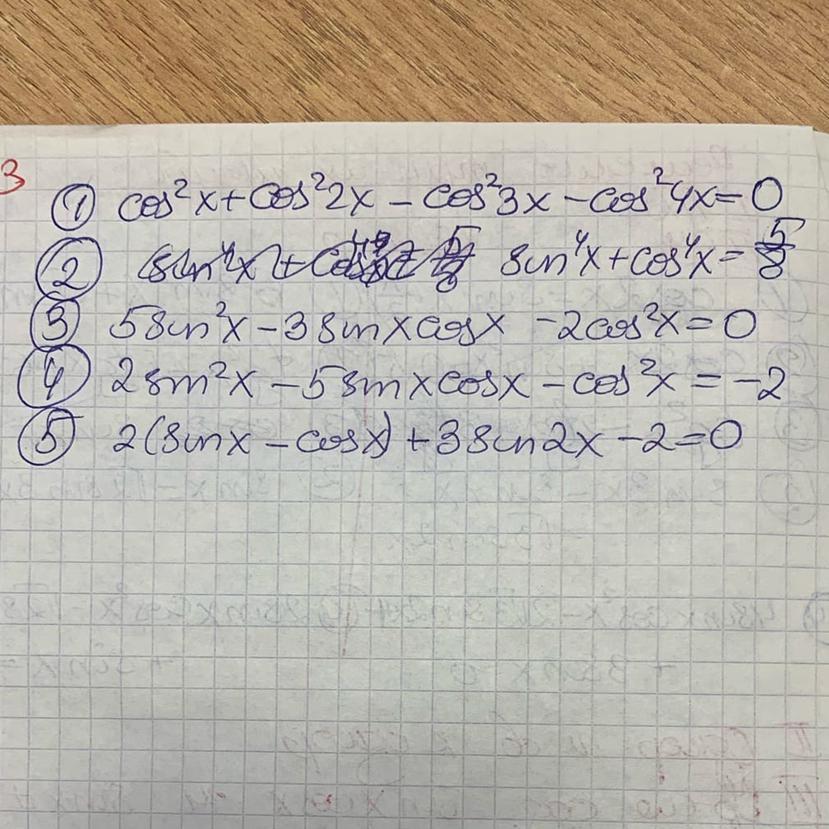 3
① cos²x + cos²2x - cos²3x - cos²4x = 0
② sin⁴x + cos⁴x = 5/8
③ 5sin²x - 3sinxcosx - 2cos²x = 0
④ 2sin²x - 5sinxcosx - cos²x = -2
⑤ 2(sinx - cosx) + 3sin2x - 2 = 0